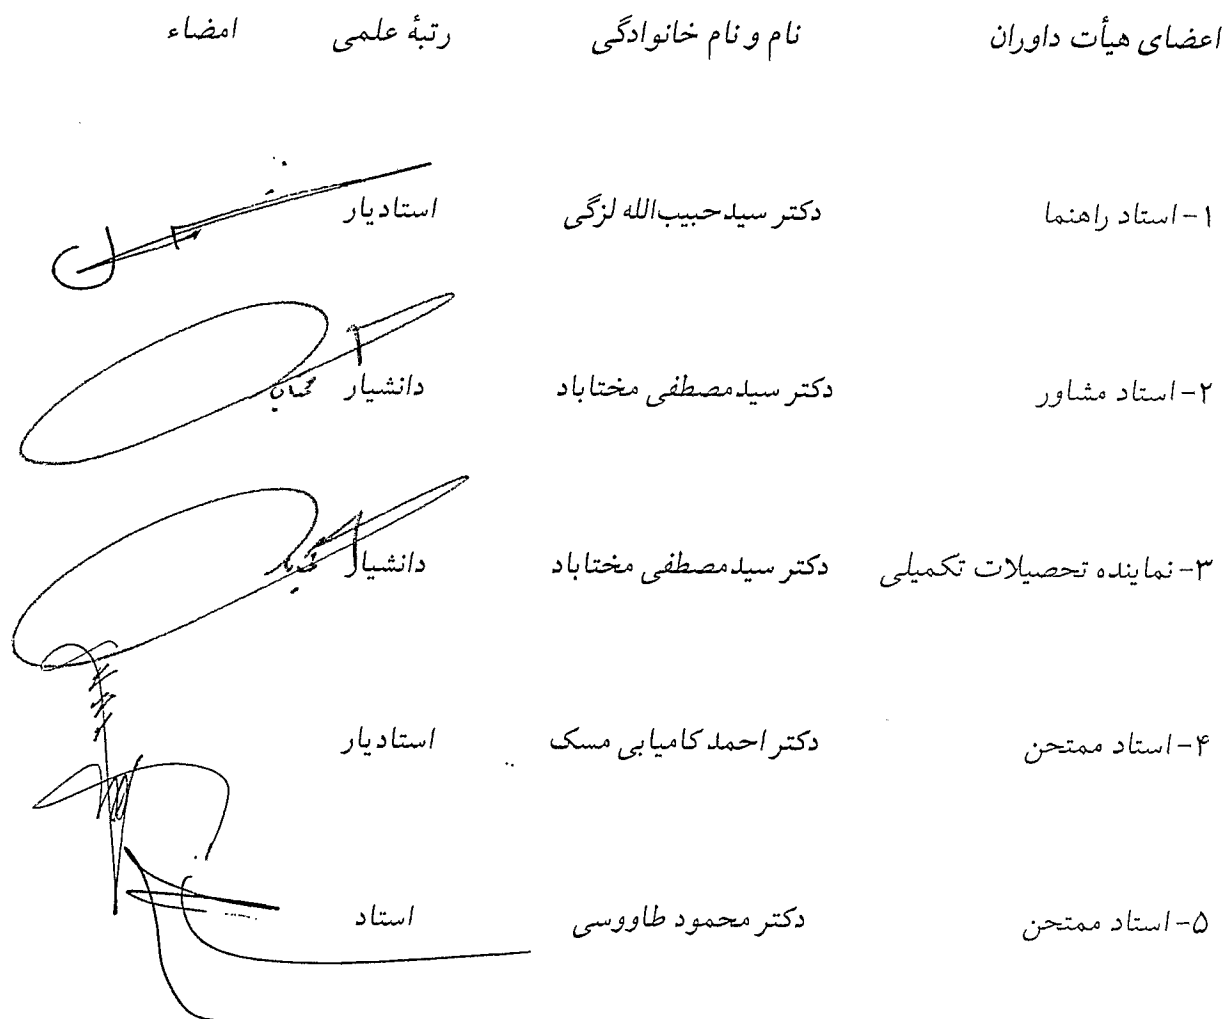 اعضای هیأت داوران نام و نام خانوادگی رتبهٔ علمی امضاء
۱- استاد راهنما دکتر سیدحبیب‌الله لزگی استادیار
۲- استاد مشاور دکتر سیدمصطفی مختاباد دانشیار
۳- نماینده تحصیلات تکمیلی دکتر سیدمصطفی مختاباد دانشیار
۴- استاد ممتحن دکتر احمد کامیابی مسک استادیار
۵- استاد ممتحن دکتر محمود طاووسی استاد